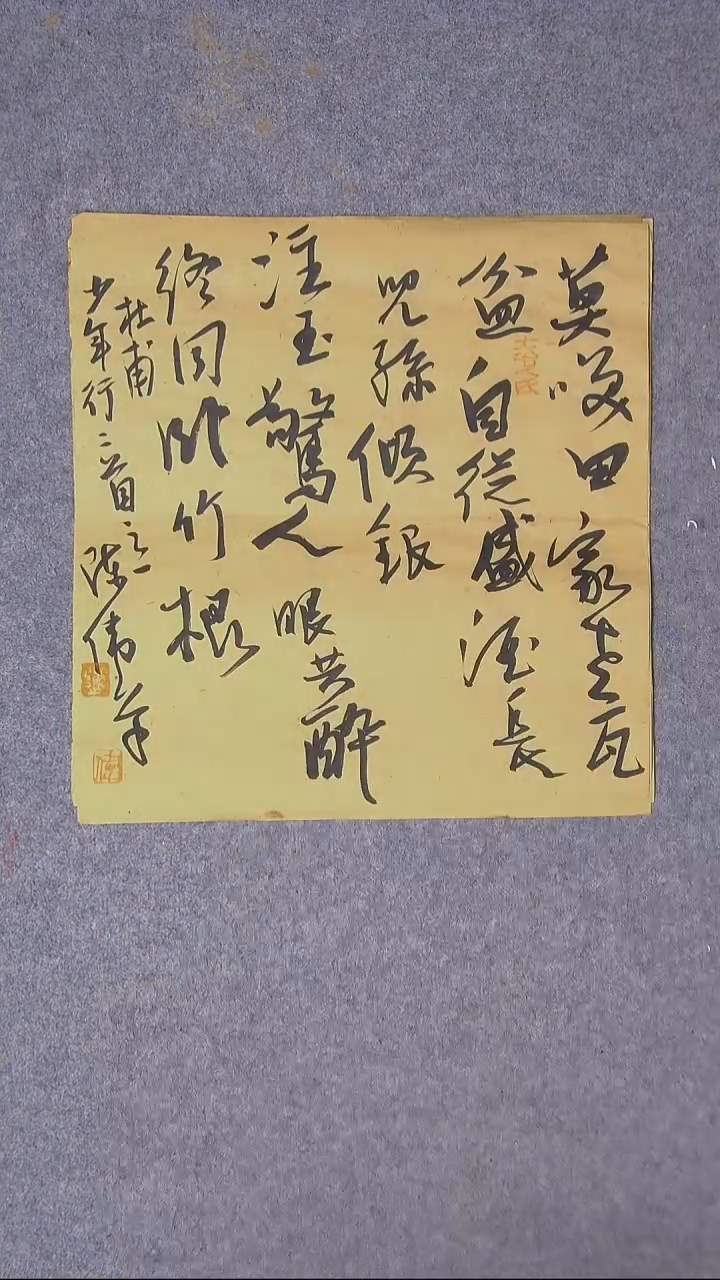 莫笑田家老瓦
盆自從盛酒長
兒孫傾銀
注玉驚人眼共醉
終同臥竹根
杜甫
少年行二首之一
陳偉